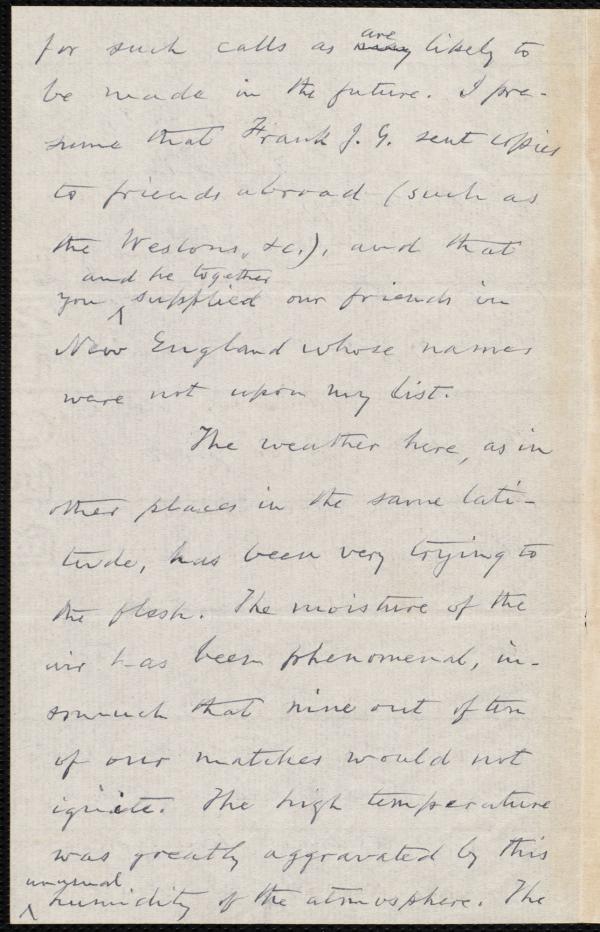 for such calls as are likely to
be made in the future. I pre-
sume that Frank J. G. sent copies
to friends abroad (such as
the Westons, &c.), and that
and he together
you ^ supplied our friends in
New England whose names
were not upon my list.
The weather here, as in
other places in the same lati-
tude, has been very trying to
the flesh. The moisture of the
air has been phenomenal, in-
somuch that nine out of ten
of our matches would not
ignite. The high temperature
was greatly aggravated by this
unusual
^ humidity of the atmosphere. The